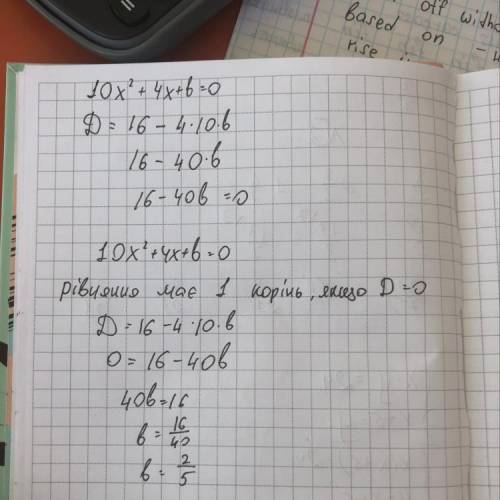 off witho
based on -
rise
10x² + 4x + b = 0
D = 16 - 4·10·b
16 - 40·b
16 - 40b = 0
10x² + 4x + b = 0
рівняння має 1 корінь, якщо D = 0
D = 16 - 4·10·b
0 = 16 - 40b
40b = 16
b = 16/40
b = 2/5